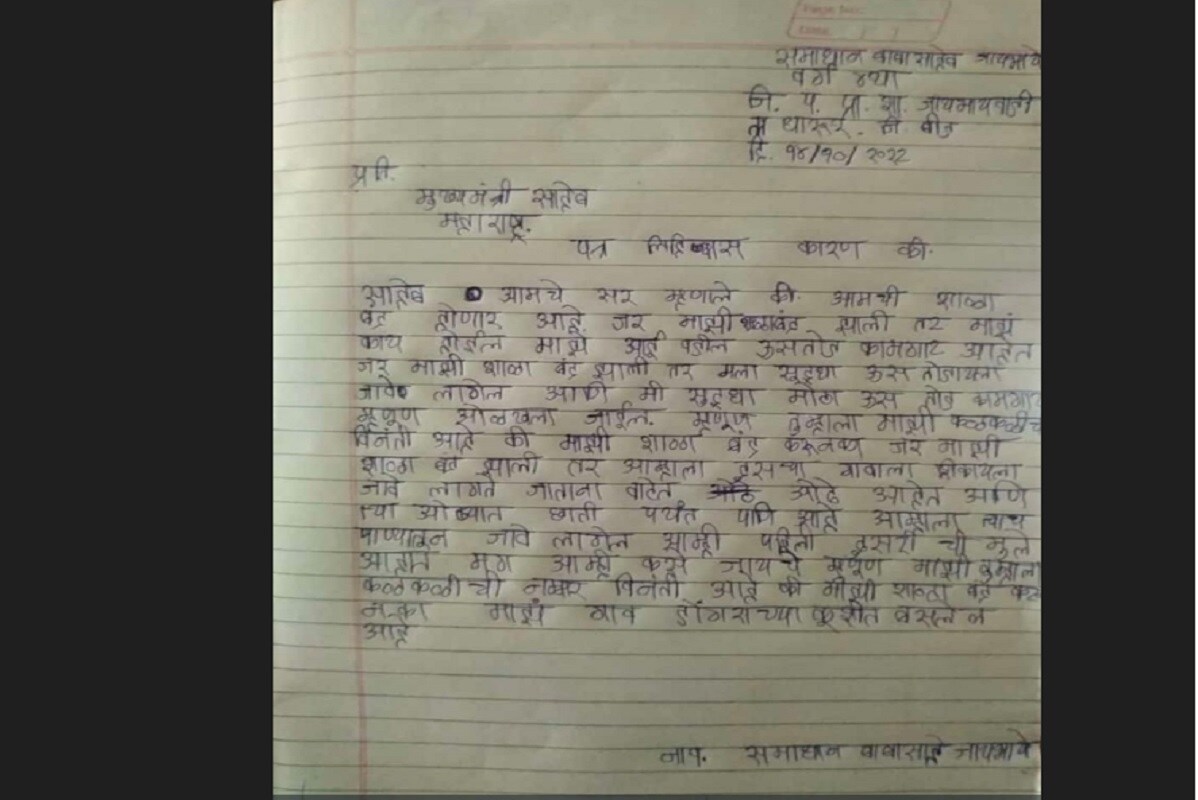 समाधान बाबासाहेब जायभाये
वर्ग ४था
जि. प. प्रा. शा. जायभायवाडी
ता धारूर. जि. बीड
दि. १४/१०/२०२२
प्रति.
मुख्यमंत्री साहेब
महाराष्ट्र.
पत्र लिहिण्यास कारण की.
साहेब आमचे सर म्हणाले की. आमची शाळा
बंद होणार आहे. जर माझी शाळा बंद झाली तर माझं
काय होईल माझे आई वडील ऊसतोड कामगार आहेत
जर माझी शाळा बंद झाली तर मला सुद्धा ऊस तोडायला
जावे लागेल आणि मी सुद्धा मोठा ऊस तोड कामगार
म्हणूण ओळखला जाईल. म्हणूण तुम्हाला माझी कळकळीच
विनंती आहे की माझी शाळा बंद करूनय जर माझी
शाळा बंद झाली तर आम्हाला दुसऱ्या गावाला शीकायला
जावे लागते जाताना वाटेत ओढे आहेत आणि
त्या ओढ्यात छाती पर्यंत पाणि आहे आम्हाला त्याच
पाण्यातून जावे लागेल आम्ही पहिली दुसरी ची मुले
आहोत मग आम्ही कसे जायचे म्हणूण माझी तुम्हाला
कळकळीची नम्र विनंती आहे की माझी शाळा बंद करू
नका माझं गाव डोंगराच्या कुशीत वसलेलं
आहे
आप. समाधान बाबासाहे जायभाये